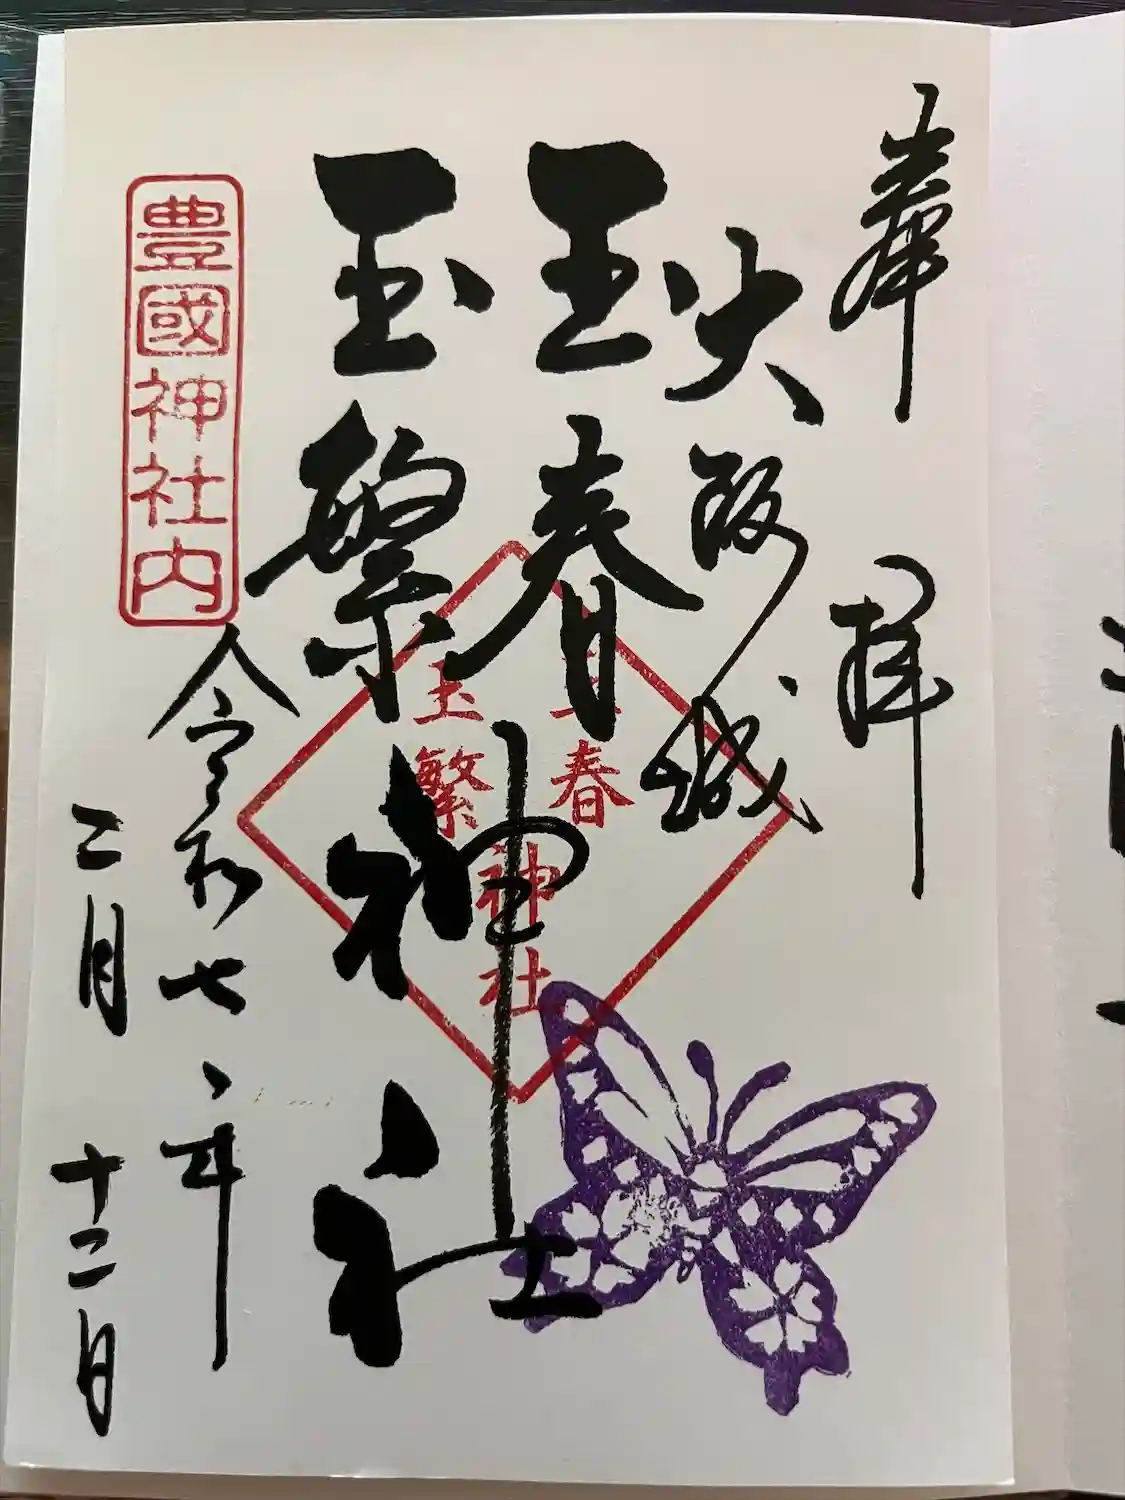 奉拝
大阪城
玉春
玉繁
神社
令和七年
二月十二日
豊國神社内
玉春
玉繁
神社